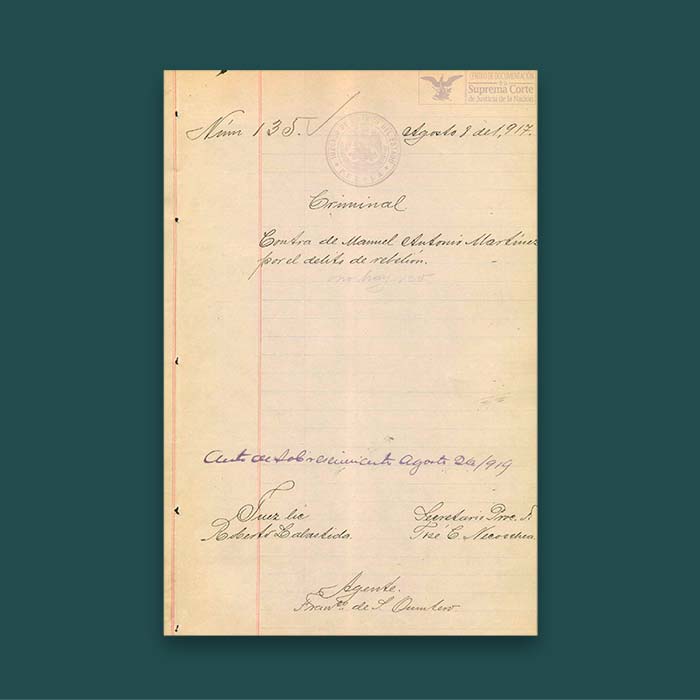 CENTRO DE DOCUMENTACIÓN
de la
Suprema Corte
de Justicia de la Nación
Núm 135.
Agosto 8 de 1,917.
PUEBLA
Criminal
Contra de Manuel Antonio Martínez
por el delito de rebelión.
no hay
Auto de sobreseimiento Agosto 26/919
Juez lic
Roberto Labastida.
Secretario Prov. I.
José C. Necochea
Agente.
Franco. de S. Quintero